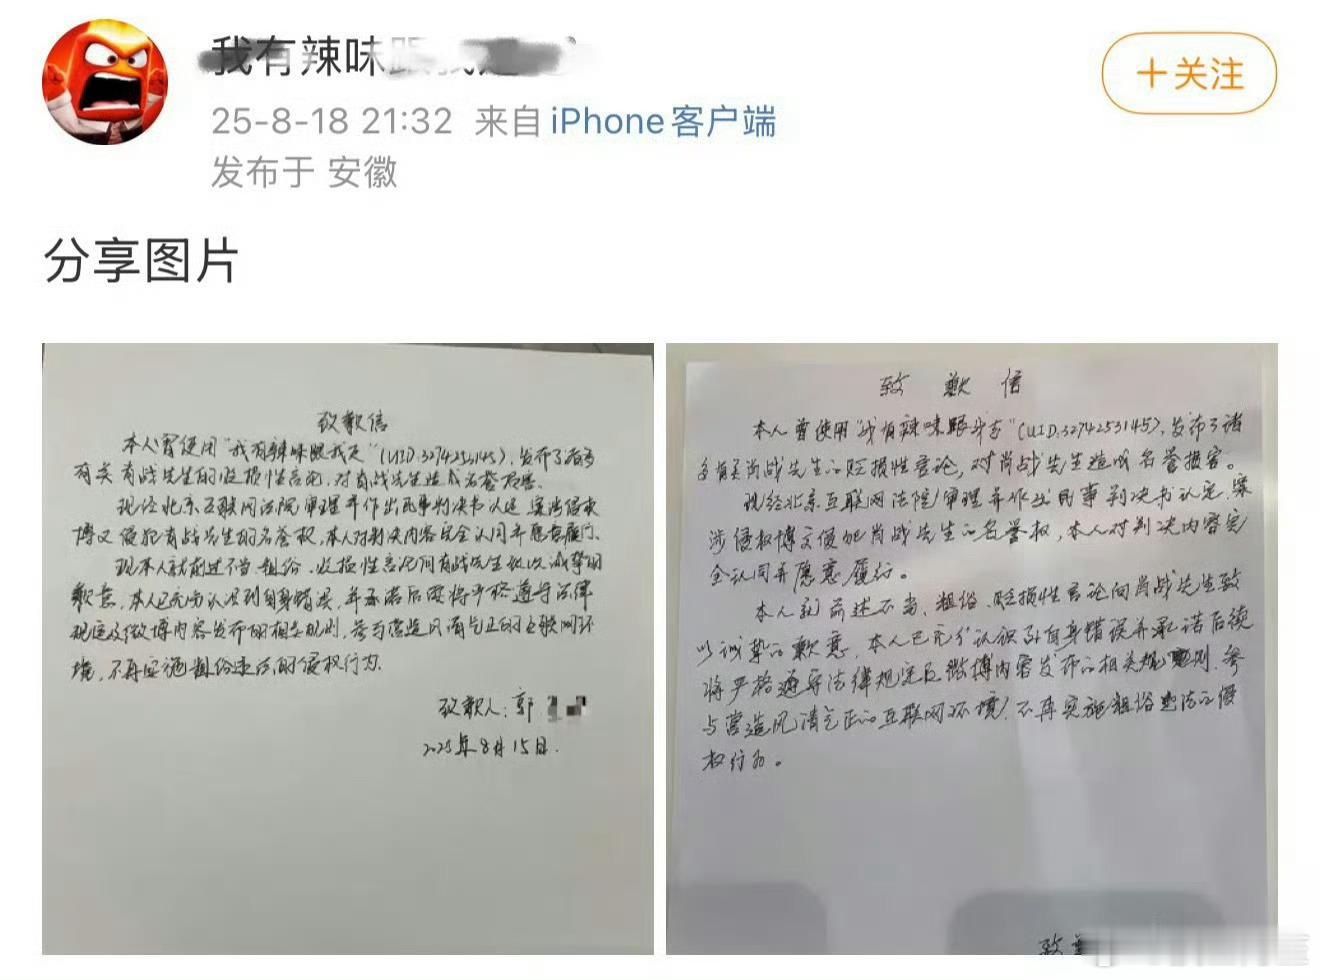 我有辣味跟我走
25-8-18 21:32 来自 iPhone客户端
发布于 安徽
+关注
分享图片
致歉信
本人曾使用"我有辣味跟我走"(UID:3274253145),发布了诸多
有关肖战先生的贬损性言论,对肖战先生造成名誉损害。
现经北京互联网法院审理并作出民事判决书认定,案涉侵权
博文侵犯肖战先生的名誉权,本人对判决内容完全认同并愿意履行。
现本人就前述不当、粗俗、贬损性言论向肖战先生致以诚挚的
歉意,本人已充分认识到自身错误,并承诺后续将严格遵守法律
规定及微博内容发布的相关规则,参与营造风清气正的互联网环
境,不再实施粗俗违法的侵权行为。
致歉人:郭
2025年8月15日.
致歉信
本人曾使用"我有辣味跟我走"(UID:3274253145),发布了诸
多有关肖战先生的贬损性言论,对肖战先生造成名誉损害。
现经北京互联网法院审理并作出民事判决书认定,案
涉侵权博文侵犯肖战先生的名誉权,本人对判决内容完
全认同并愿意履行。
本人就前述不当、粗俗、贬损性言论向肖战先生致
以诚挚的歉意,本人已充分认识到自身错误并承诺后续
将严格遵守法律规定及微博内容发布的相关规则,参
与营造风清气正的互联网环境,不再实施粗俗违法的侵
权行为。
致